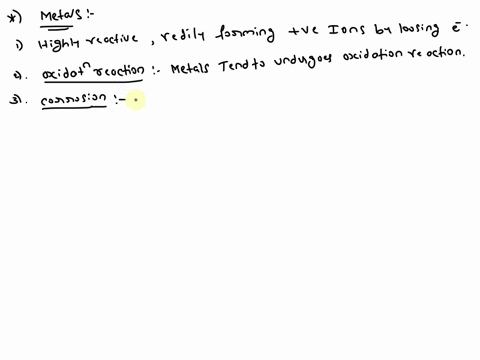 *) Metals :-
1) Highly reactive, redily forming +ve Ions by loosing e⁻.
2). oxidatⁿ reaction :- Metals Tend to undergoes oxidation reaction.
3). corrosion :-